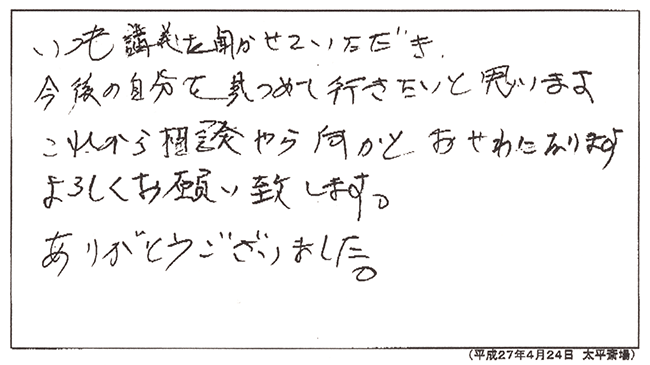 いつも講義を聞かせていただき、
今後の自分を見つめて行きたいと思います
これから相談やら何かとおせわになります
よろしくお願い致します。
ありがとうございました。
(平成27年4月24日 太平斎場)